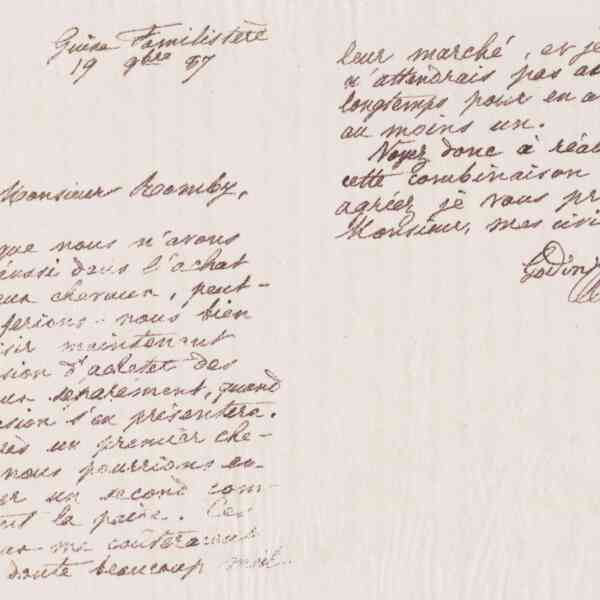 Guise Familistère
19 9bre 87
Monsieur Romby,
que nous n'avons
réussi dans l'achat
chevaux, peut-
ferions-nous bien
maintenant
d'acheter des
séparément, quand
s'en présentera.
un premier che-
nous pourrions en-
un second com-
la paire. Ces
me coûteraient
doute beaucoup
leur marché, et je
n'attendrais pas
longtemps pour en
au moins un.
Voyez donc à
cette combinaison
agréer je vous
Monsieur, mes
Godin